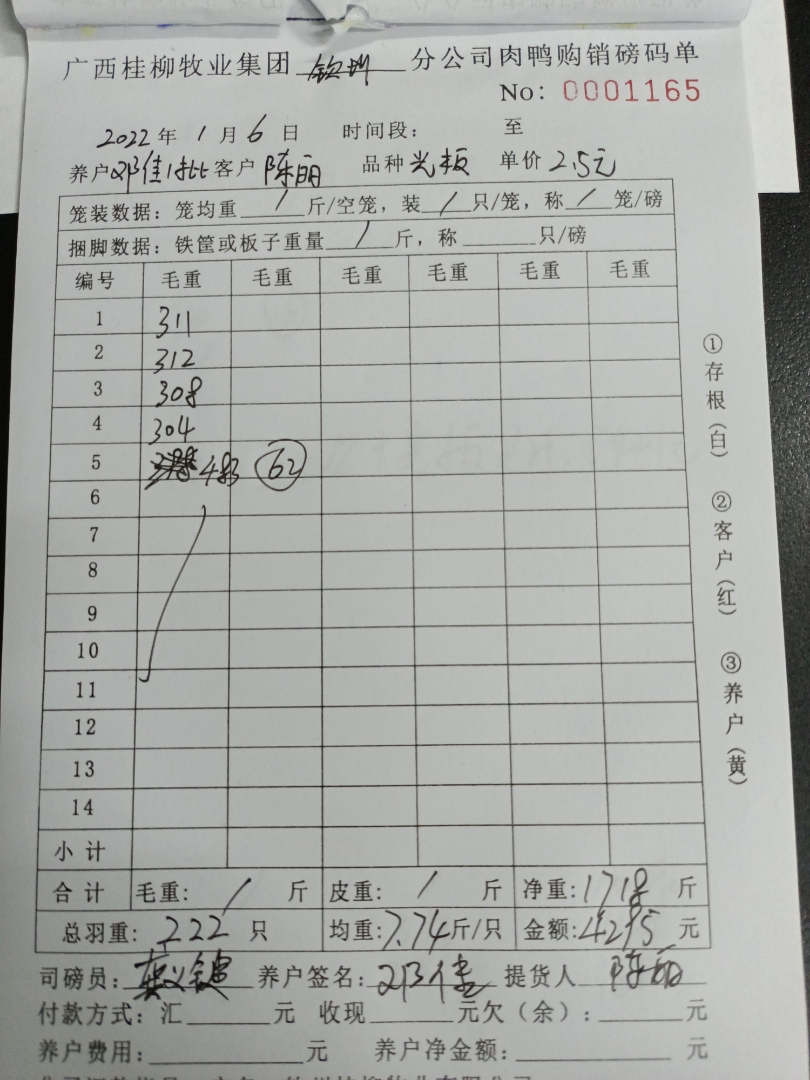 广西桂柳牧业集团 钦州 分公司肉鸭购销磅码单
No: 0001165
2022年 1月 6日 时间段: 至
养户 邓佳 客户 陈丽 品种 光板 单价 2.5元
笼装数据: 笼均重 / 斤/空笼, 装 / 只/笼, 称 / 笼/磅
捆脚数据: 铁筐或板子重量 / 斤, 称 只/磅
编号 毛重 毛重 毛重 毛重 毛重 毛重
1 311
2 312
3 308
4 304
5 483 62
6
7
8
9
10
11
12
13
14
小计
合计 毛重: / 斤 皮重: / 斤 净重: 1718 斤
总羽重: 222 只 均重: 7.74 斤/只 金额: 4295 元
司磅员: 养户签名: 邓佳 提货人 陈丽
付款方式: 汇 元 收现 元欠(余): 元
养户费用: 元 养户净金额: 元
①存根(白) ②客户(红) ③养户(黄)